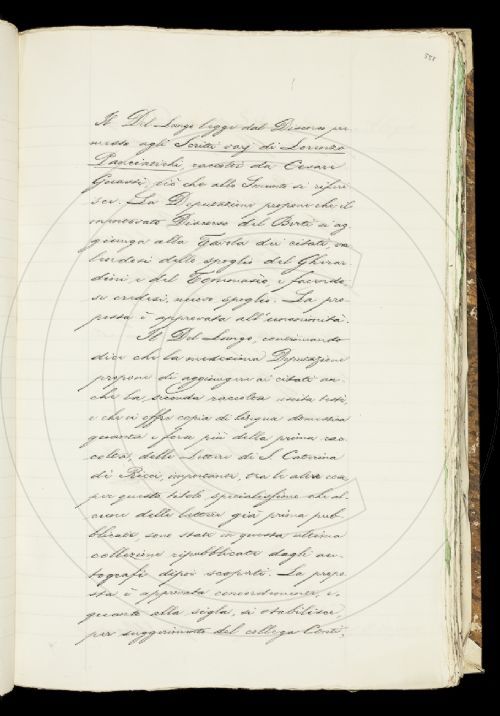 555
Il Del Lungo legge dal Discorso pre
messo agli Scritti varj di Lorenzo
Panciatichi, raccolti da Cesare
Guasti, ciò che allo Scrivente si riferi
sce. La Deputazione propone che il
Discorso del Berti si ag
giunga alla Tavola dei citati, va
lendosi dello spoglio del Gherar
dini e del Tommaseo, e facendo,
se credesi, nuovo spoglio. La pro
posta è approvata all'unanimità.
Il Del Lungo, continuando
dice che la medesima Deputazione
propone di aggiungere ai citati an-
che la seconda raccolta uscita testé,
e che ci offre copia di lingua domestica
quanta e forse più della prima rac
colta, delle Lettere di S. Caterina
de' Ricci, importante, tra le altre cose
per questo titolo specialissimo che al-
cune delle lettere già prima pub-
blicate, sono state in questa ultima
collezione ripubblicate dagli au-
tografi dipoi scoperti. La propo
sta è approvata concordemente, e,
quanto alla sigla, si stabilisce,
per suggerimento del collega Conti,